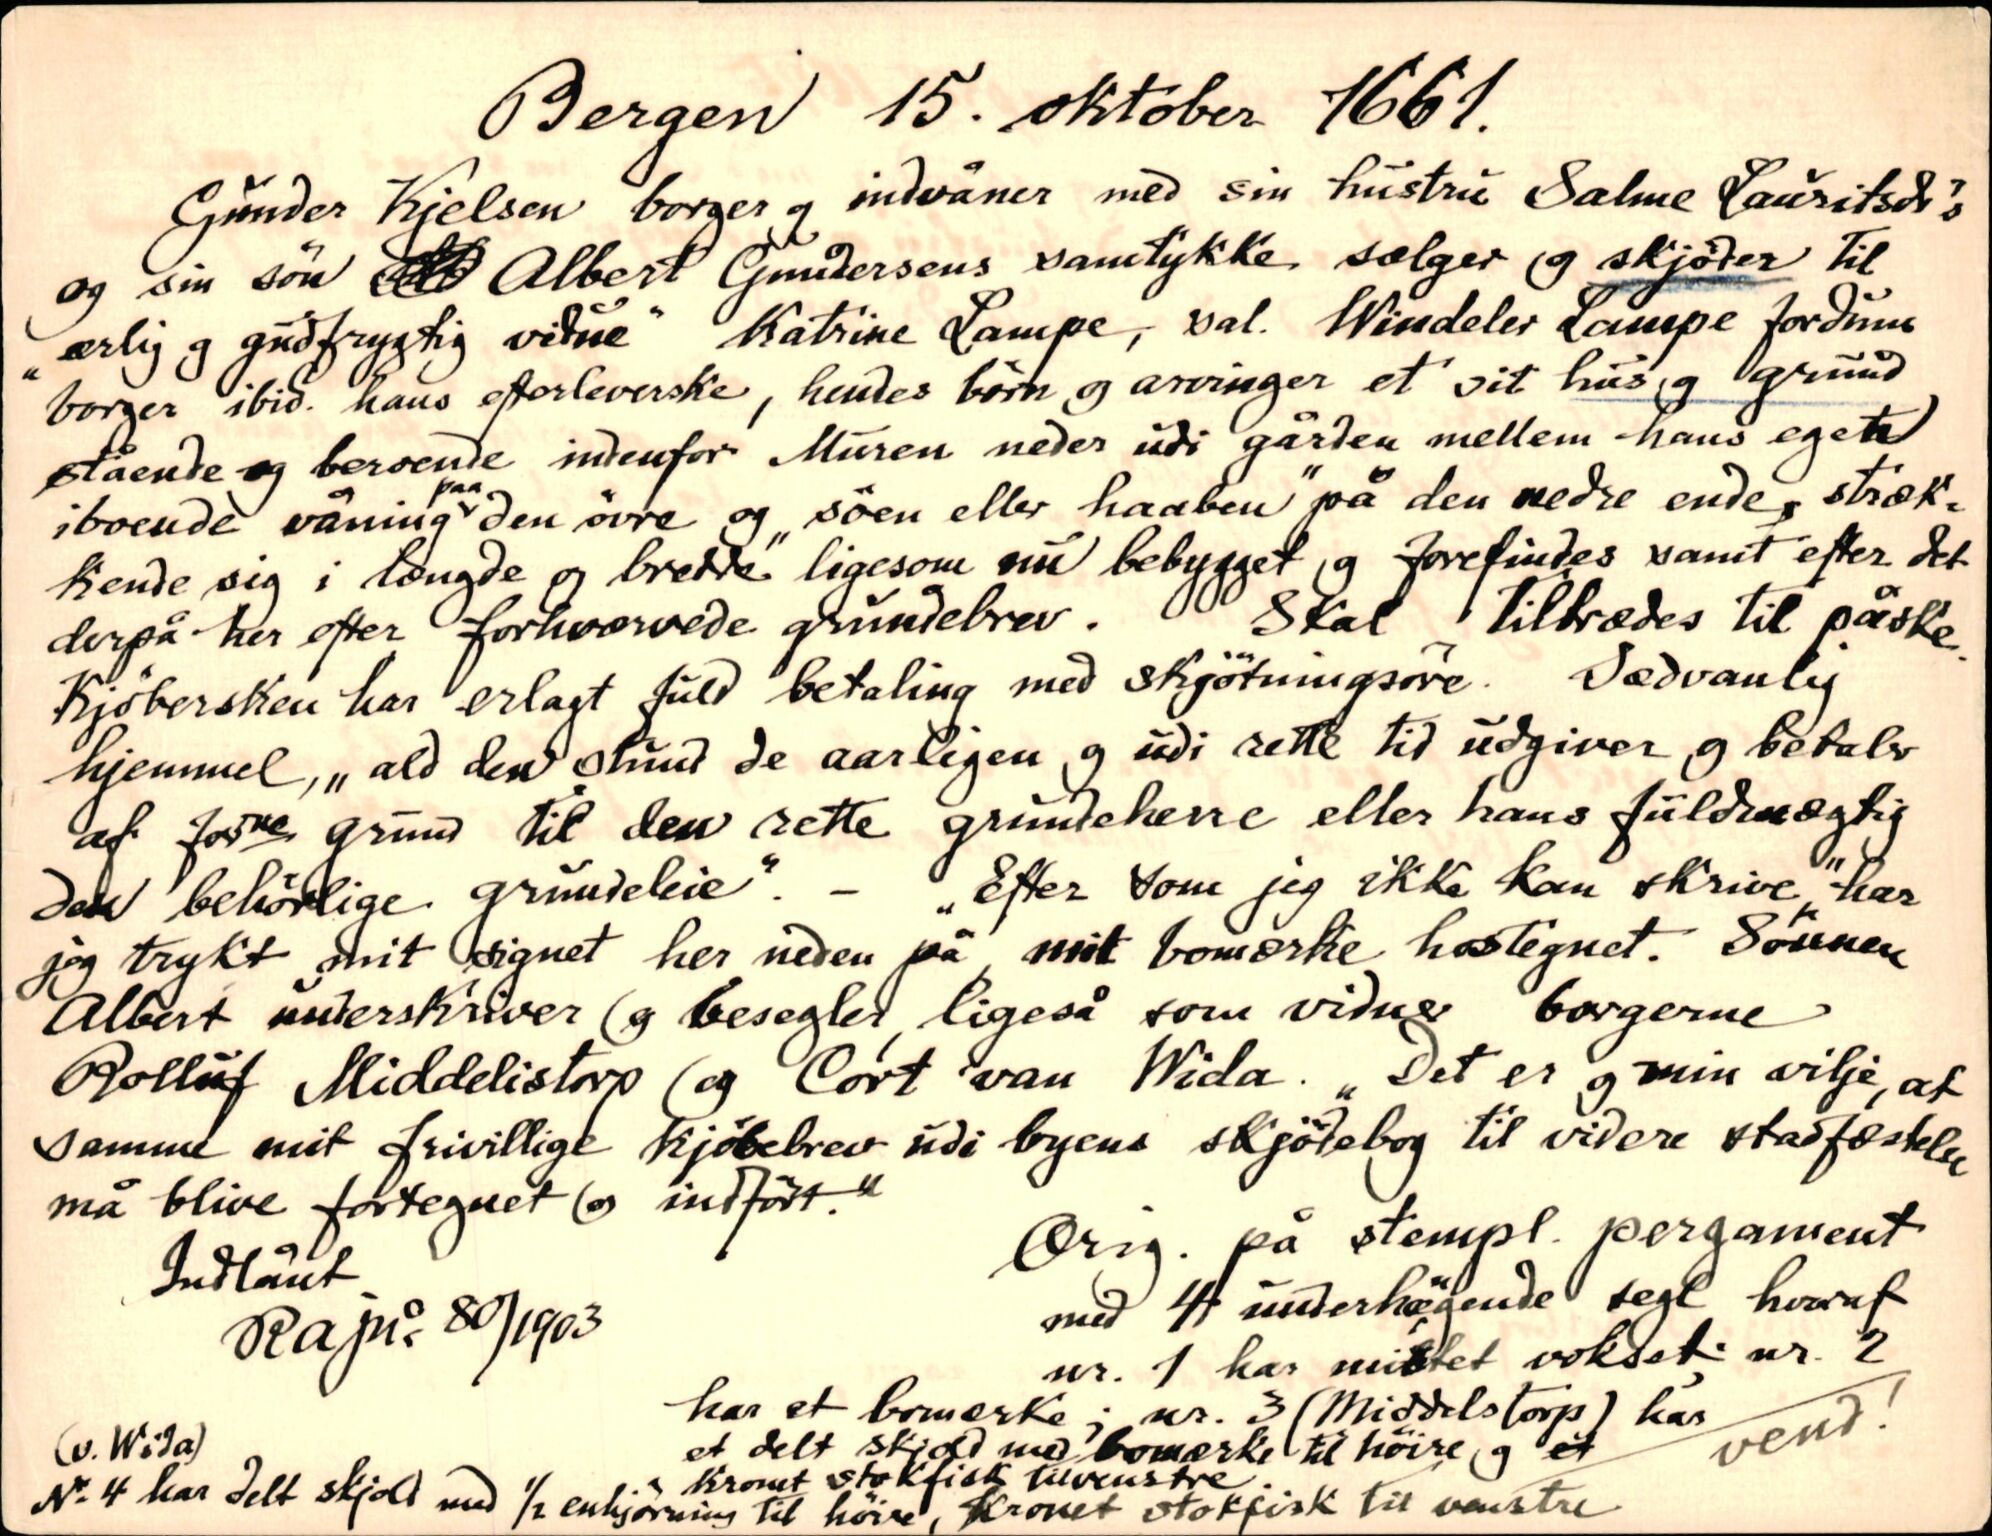 Bergen 15. oktober 1661.
Gunder Kjelsen borger og indvåner med sin hustru Salme Lauritsdr's
og sin sön Albert Gundersens samtykke sælger og skjöder til
"ærlig og gudfrygtig vidue" Katrine Lampe, sal. Windeler Lampe fordum
borger ibid. hans efterleverske, hendes börn og arvinger et sit hus og grund
stående og beroende indenfor Muren neder udi gården mellem hans egete
iboende våning paa den övre og "söen eller haaben" på den nedre ende, stræk-
kende sig i længde og bredde "ligesom nu bebygget og forefindes samt efter det
derpå her efter forhværvede grundebrev. Skal tiltrædes til påske.
Kjöbersken har erlagt fuld betaling med skjötningsöre. Sædvanlig
hjemmel, "ald den stund de aarligen og udi rette tid udgiver og betaler
af forne grund til den rette grundeherre eller hans fuldmægtig
den behörlige grundeleie". - "Efter som jeg ikke kan skrive" har
jeg trykt mit signet her neden på, mit bomærke hostegnet. Sönnen
Albert underskriver og besegler, ligeså som vidner borgerne
Rolluf Middelistorp og Cort van Wida. "Det er og min vilje, at
samme mit frivillige kjöbebrev udi byens skjödebog til videre stadfæstelse
må blive fortegnet og indfört."
Orig. på stempl. pergament
Indlånt
med 4 underhægende segl hvoraf
Ra jnr. 80/1903
nr. 1 har mistet vokset; nr. 2
har et bomærke; nr. 3 (Middelstorp) har
et delt skjold med bomærke til höire og et
kronet stokfisk tilvenstre
vend!
(v. Wida)
Nr. 4 har delt skjold med 1/2 enhjörning til höire, kronet stokfisk til venstre